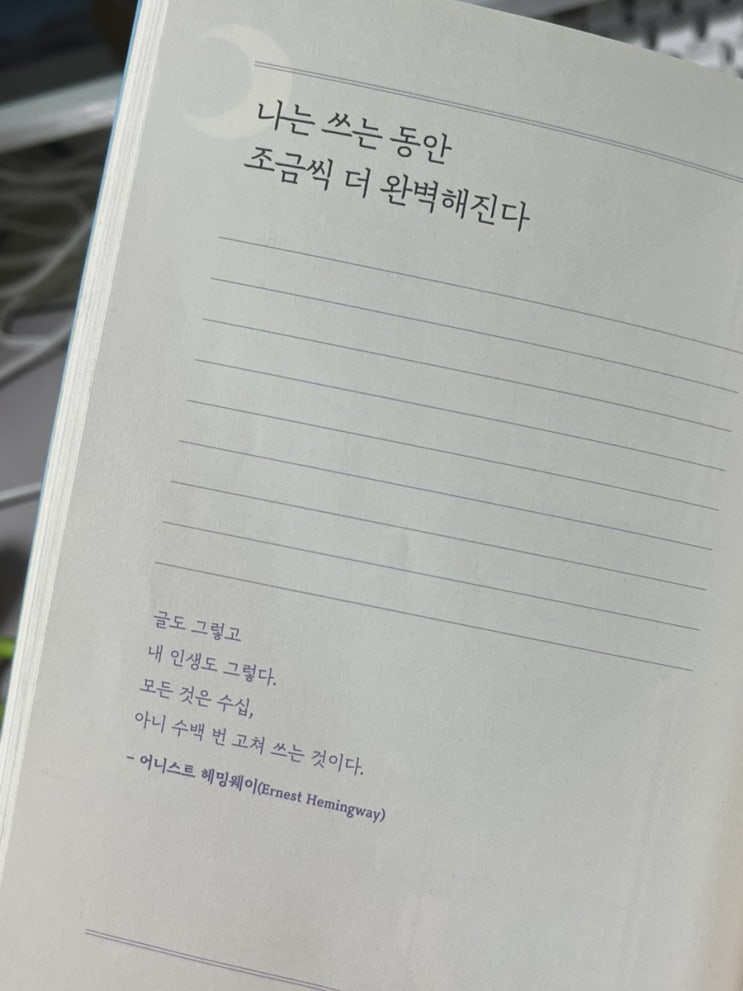 나는 쓰는 동안
조금씩 더 완벽해진다
글도 그렇고
내 인생도 그렇다.
모든 것은 수십,
아니 수백 번 고쳐 쓰는 것이다.
- 어니스트 헤밍웨이(Ernest Hemingway)